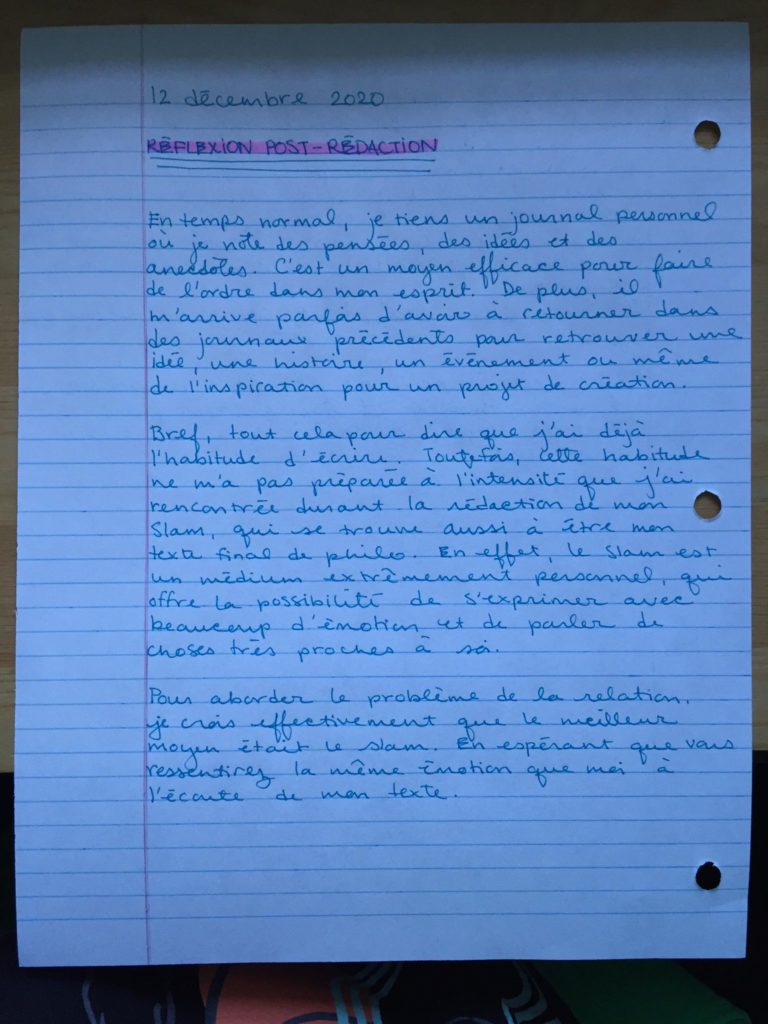 12 décembre 2020
RÉFLEXION POST-RÉDACTION
En temps normal, je tiens un journal personnel
où je note des pensées, des idées et des
anecdotes. C'est un moyen efficace pour faire
de l'ordre dans mon esprit. De plus, il
m'arrive parfois d'avoir à retourner dans
des journaux précédents pour retrouver une
idée, une histoire, un événement ou même
de l'inspiration pour un projet de création.
Bref, tout cela pour dire que j'ai déjà
l'habitude d'écrire. Toutefois, cette habitude
ne m'a pas préparée à l'intensité que j'ai
rencontrée durant la rédaction de mon
Slam, qui se trouve aussi à être mon
texte final de philo. En effet, le slam est
un médium extrêmement personnel, qui
offre la possibilité de s'exprimer avec
beaucoup d'émotion et de parler de
choses très proches à soi.
Pour aborder le problème de la relation,
je crois effectivement que le meilleur
moyen était le slam. En espérant que vous
ressentirez la même émotion que moi à
l'écoute de mon texte.